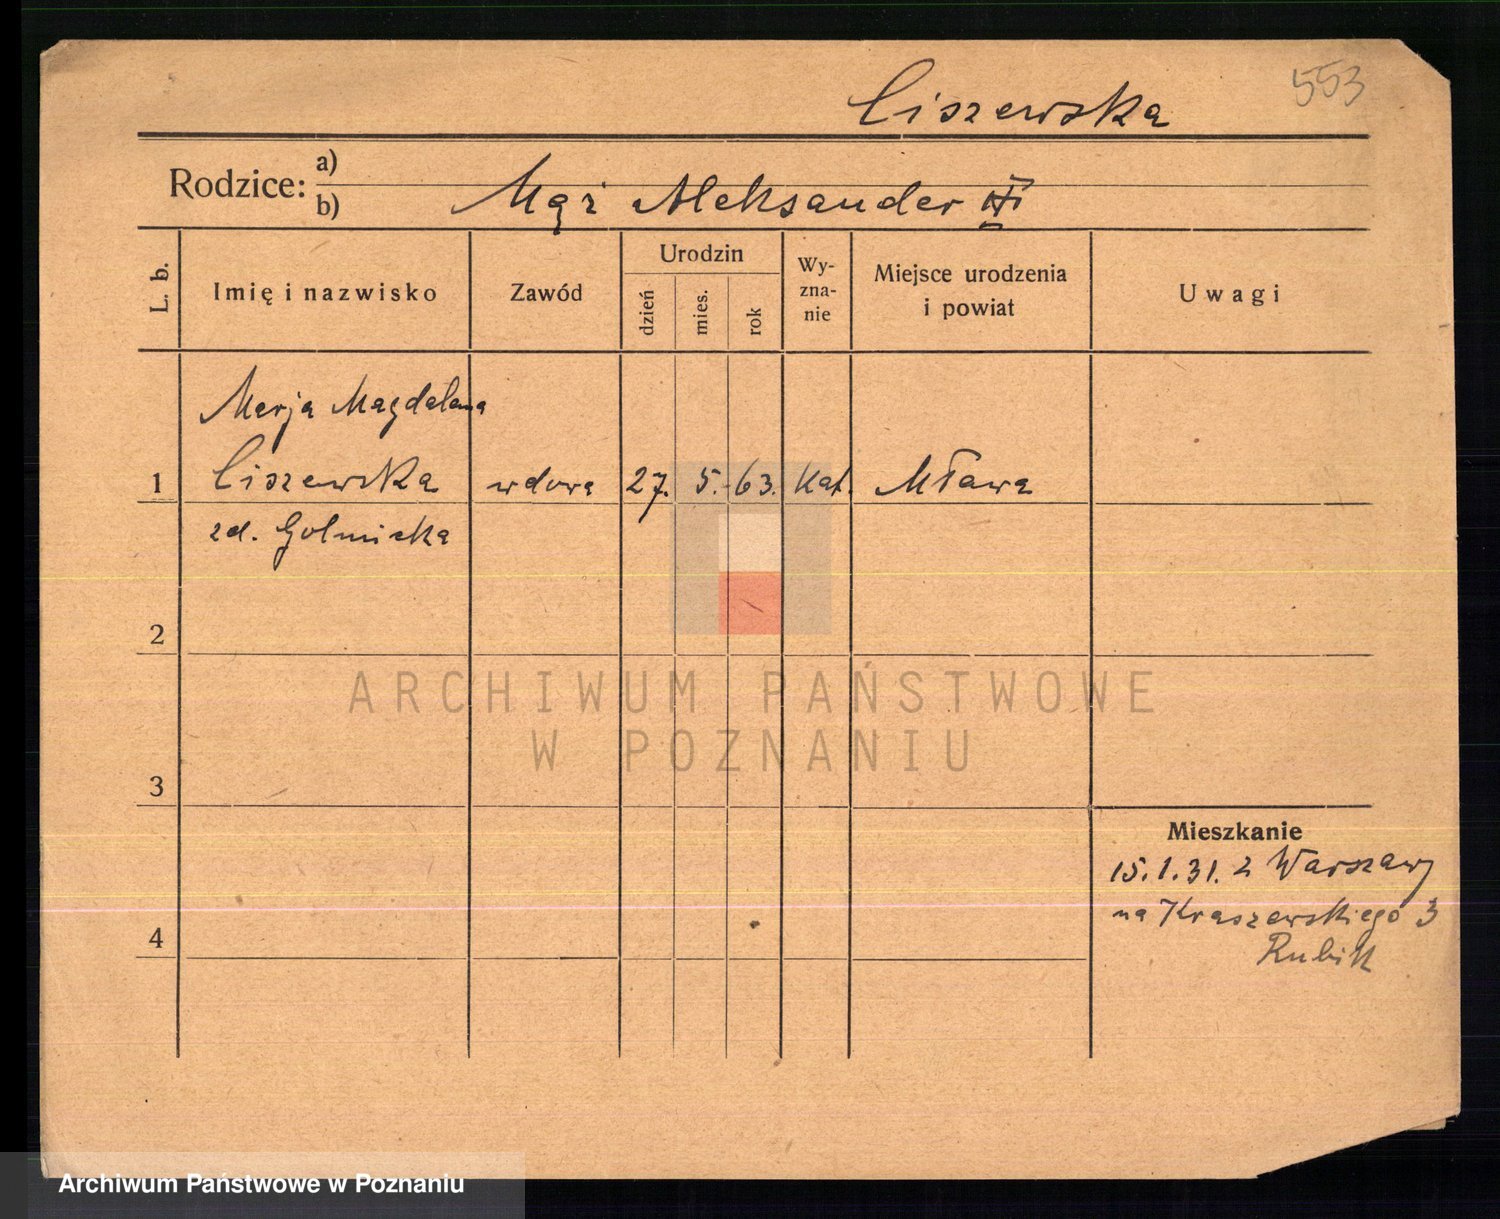 553
Ciszewska
Rodzice: a)
b) Mąż Aleksander
L. b.
Imię i nazwisko
Zawód
Urodzin
dzień
mies.
rok
Wy-
zna-
nie
Miejsce urodzenia
i powiat
Uwagi
Marja Magdalena
1 Ciszewska wdowa 27. 5. 63. Kat. Mława
zd. Golnicka
2
3
4
Mieszkanie
15.1.31. z Warszawy
na Kraszewskiego 3
Rubik
ARCHIWUM PAŃSTWOWE
W POZNANIU
Archiwum Państwowe w Poznaniu